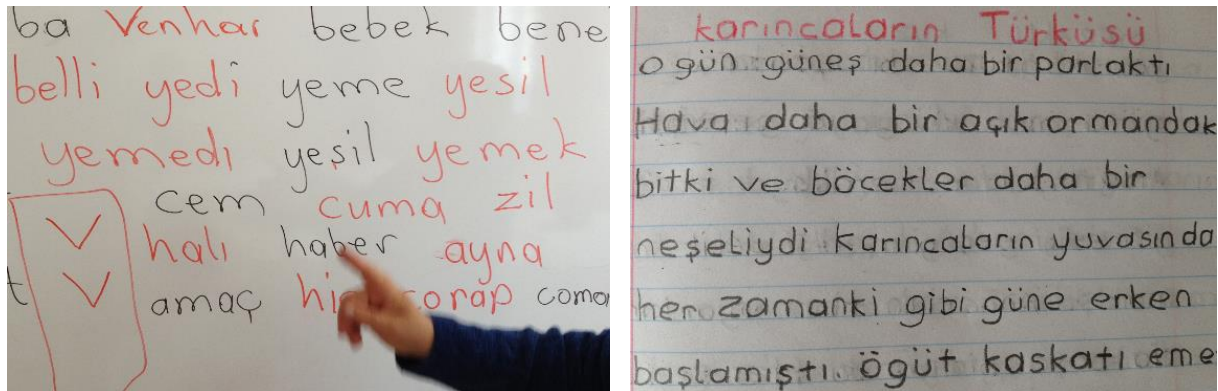 ba Venhar bebek bene
belli yedi yeme yesil
yemedi yeşil yemek
cem cuma zil
halı haber ayna
amaç
karıncaların Türküsü
o gün güneş daha bir parlaktı
Hava daha bir açık ormandak
bitki ve böcekler daha bir
neşeliydi karıncaların yuvasında
her zamanki gibi güne erken
başlamıştı. ögüt kaskatı eme